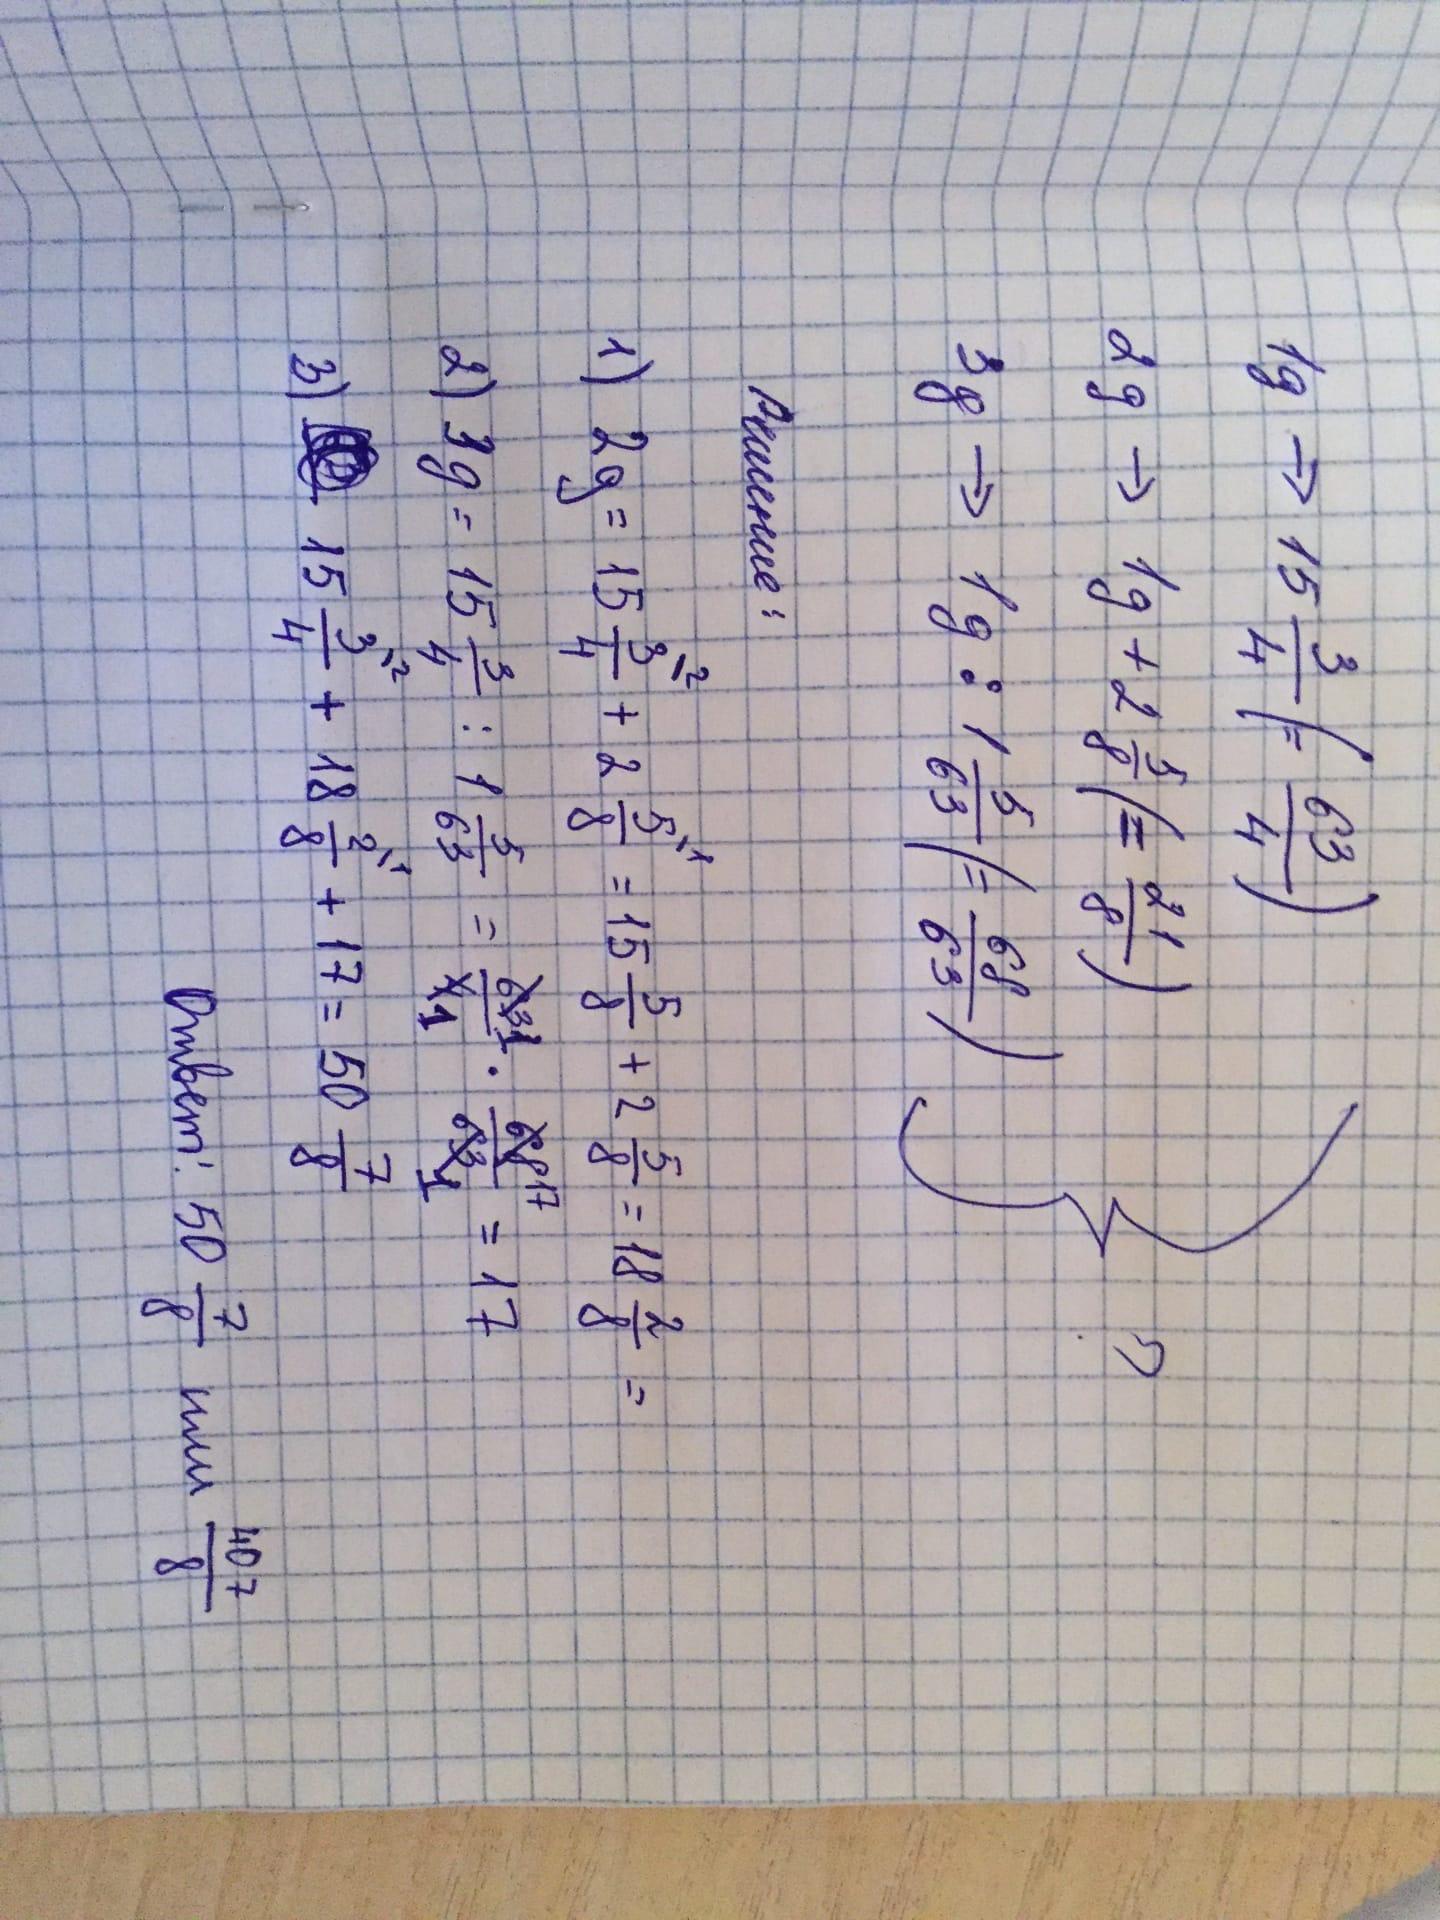 1g → 15 3/4 (= 63/4)
2g → 1g + 2 5/8 (= 21/8)
3g → 1g : 1 5/63 (= 68/63)
?
Решение:
1) 2g = 15 3/4 \2 + 2 5/8 \1 = 15 5/8 + 2 5/8 = 18 2/8 =
2) 3g = 15 3/4 : 1 5/63 = 63 1/4 1 · 68 17/63 1 = 17
3) 15 3/4 \2 + 18 2/8 \1 + 17 = 50 7/8
Ответ: 50 7/8 или 407/8